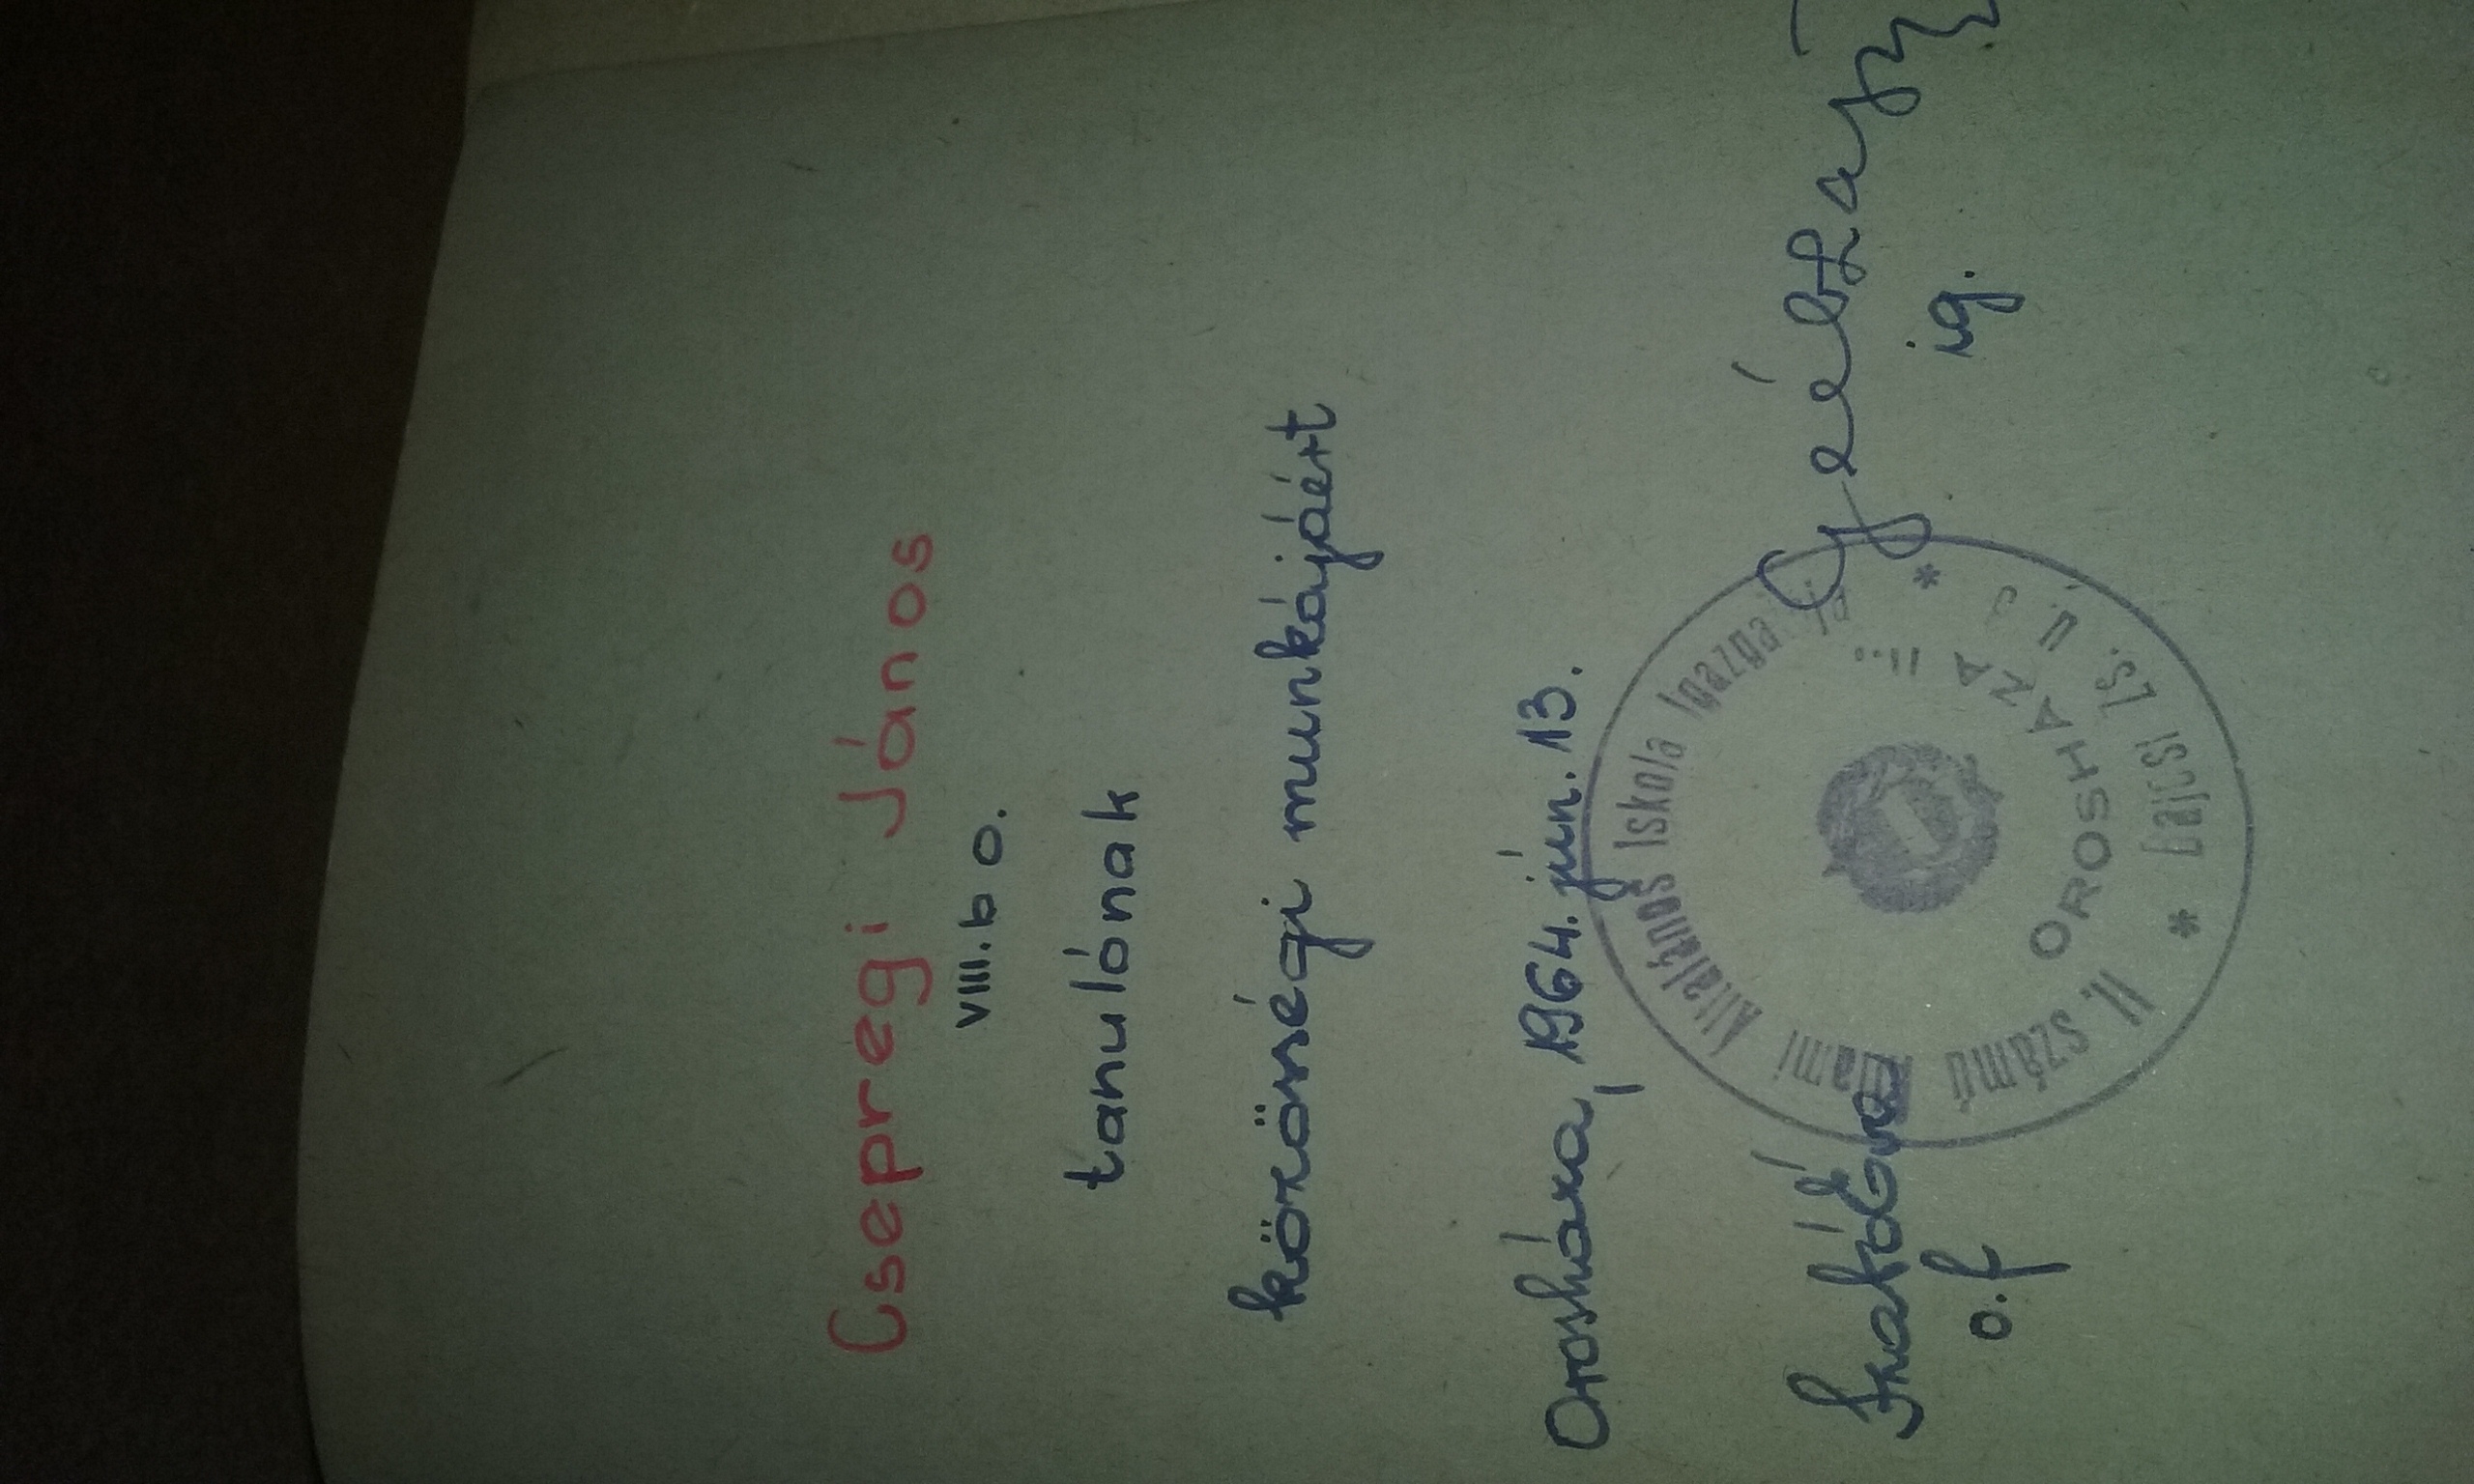 Csepregi János
VIII. b o.
tanulónak
közösségi munkájáért
Orosháza, 1964. jún. 13.
ig.
o. f
II. számú Állami Általános Iskola Igazga
* Bajcsi Zs. Ú.
OROSHÁZA